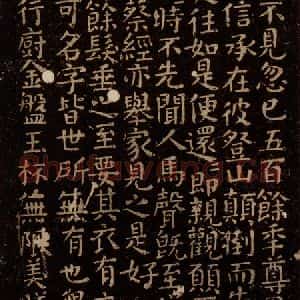 不見忽已五百餘季尊
信承在彼登山顛倒而
往如是便還即親覲願
時不先聞人馬聲既至
蔡經亦舉家見之是好
餘髮垂之至要其衣有
可名字皆世所無有也
行廚金盤玉杯無限美